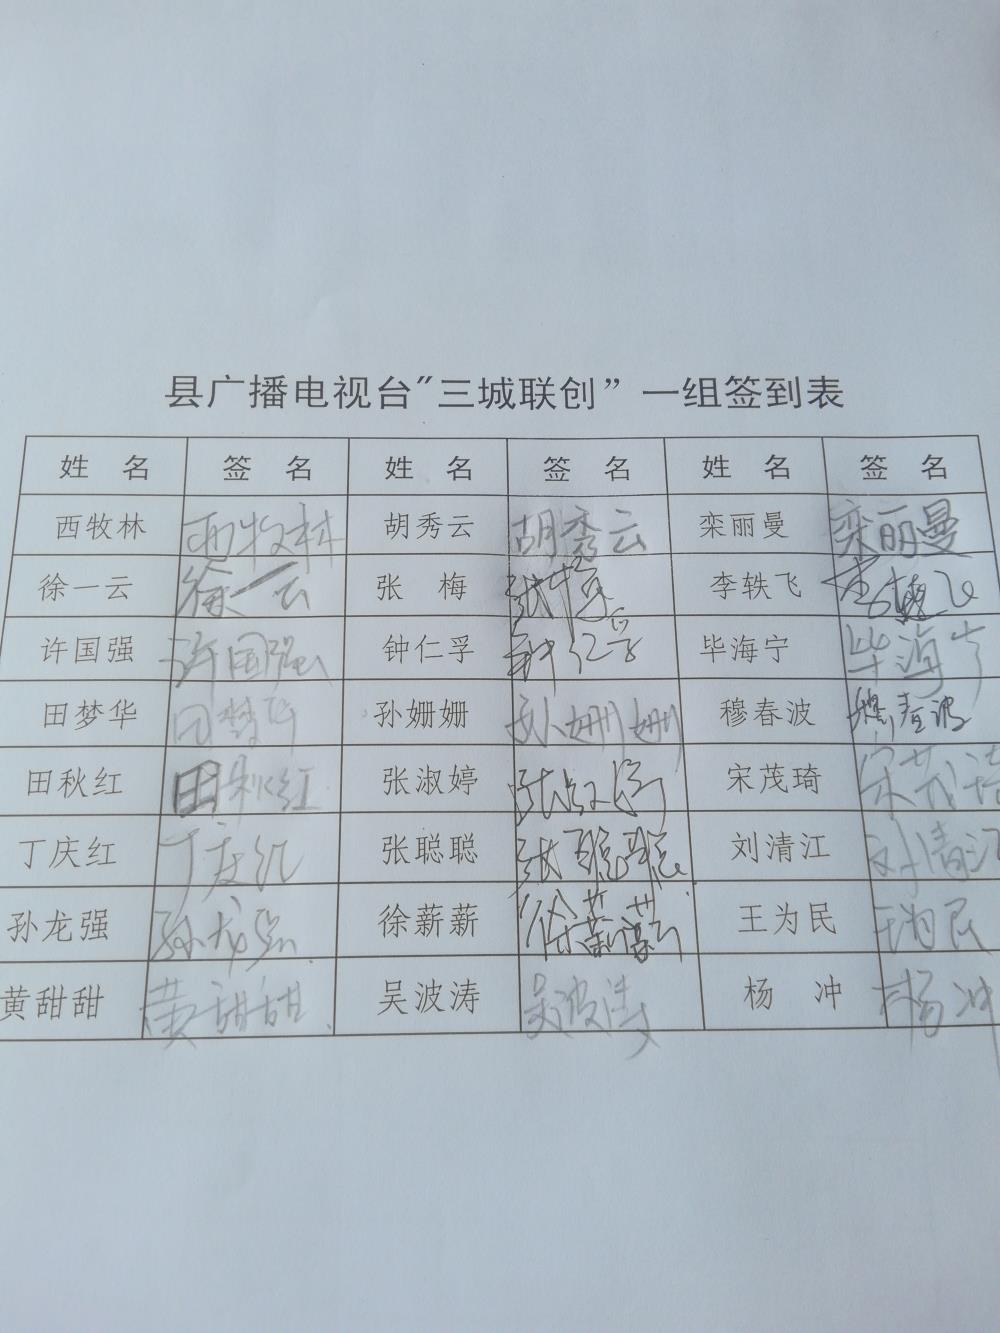 县广播电视台"三城联创” 一组签到表
姓 名 签 名 姓 名 签 名 姓 名 签 名
西牧林 西牧林 胡秀云 胡秀云 栾丽曼 栾丽曼
徐一云 徐一云 张 梅 张梅 李轶飞 李轶飞
许国强 许国强 钟仁孚 钟仁孚 毕海宁 毕海宁
田梦华 田梦华 孙姗姗 孙姗姗 穆春波 穆春波
田秋红 田秋红 张淑婷 张淑婷 宋茂琦 宋茂琦
丁庆红 丁庆红 张聪聪 张聪聪 刘清江 刘清江
孙龙强 孙龙强 徐薪薪 徐薪薪 王为民 王为民
黄甜甜 黄甜甜 吴波涛 吴波涛 杨 冲 杨冲